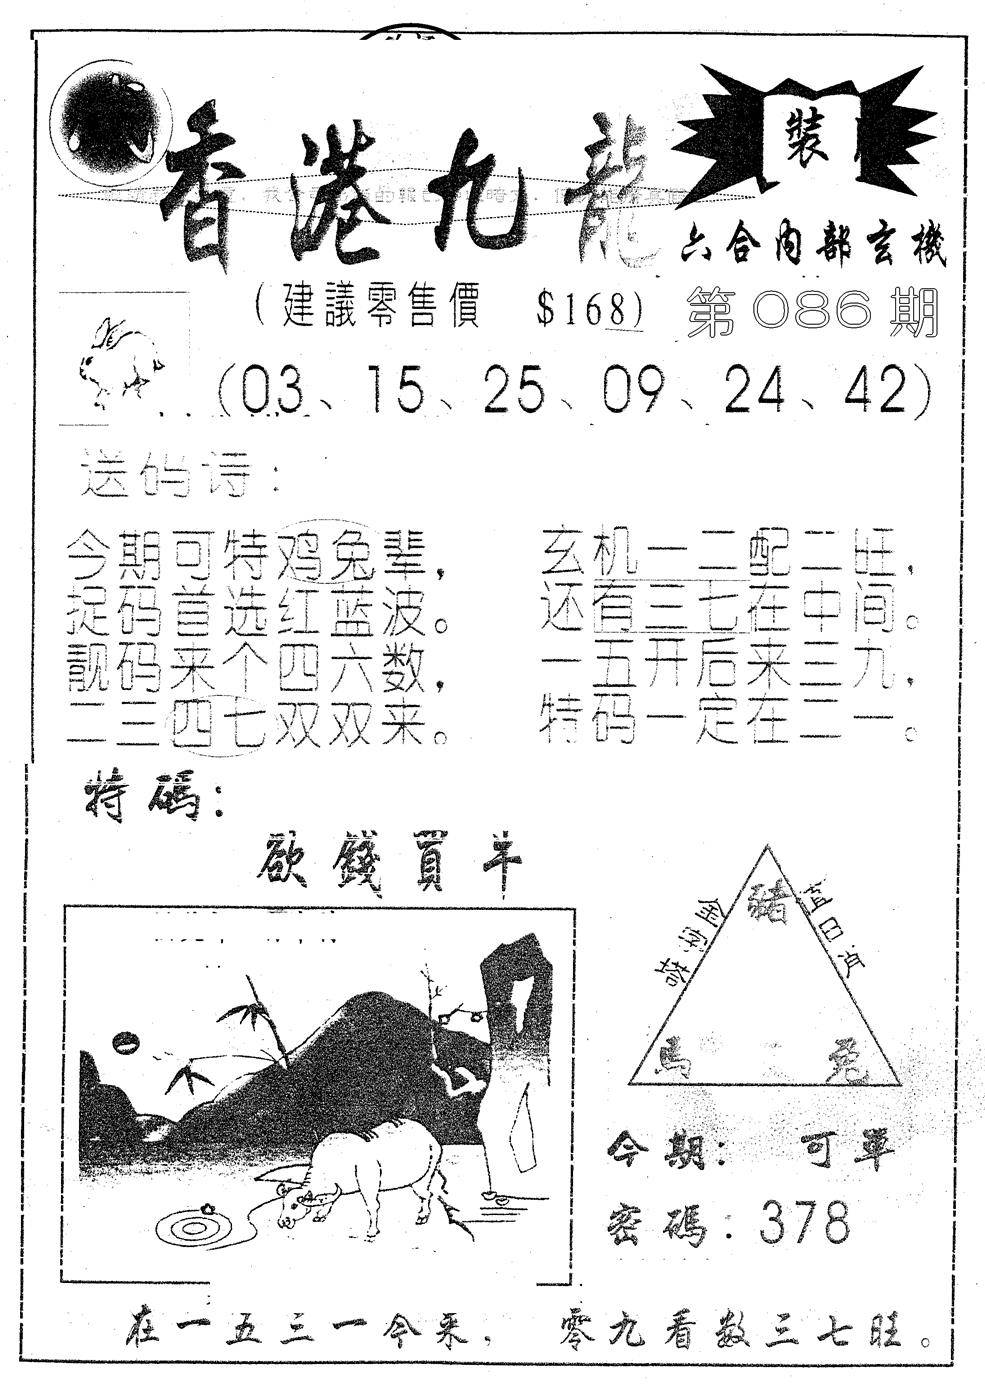 香港九龍
裝
六合内部玄機
(建議零售價 $168)
第086期
(03、15、25、09、24、42)
送码诗:
今期可特鸡兔辈,
捉码首选红蓝波。
靓码来个四六数,
二三四七双双来。
玄机一二配二旺,
还有三七在中间。
一五开后来三九,
特码一定在二一。
特碼:
欲錢買牛
金字塔
豬
馬
兔
今期: 可單
密碼:378
在一五三一今来, 零九看数三七旺。